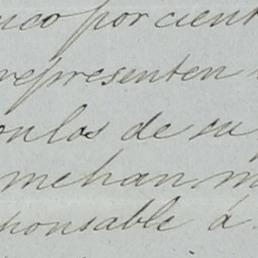 nco por cient
representen
onlos de su
me han m
sponsable á